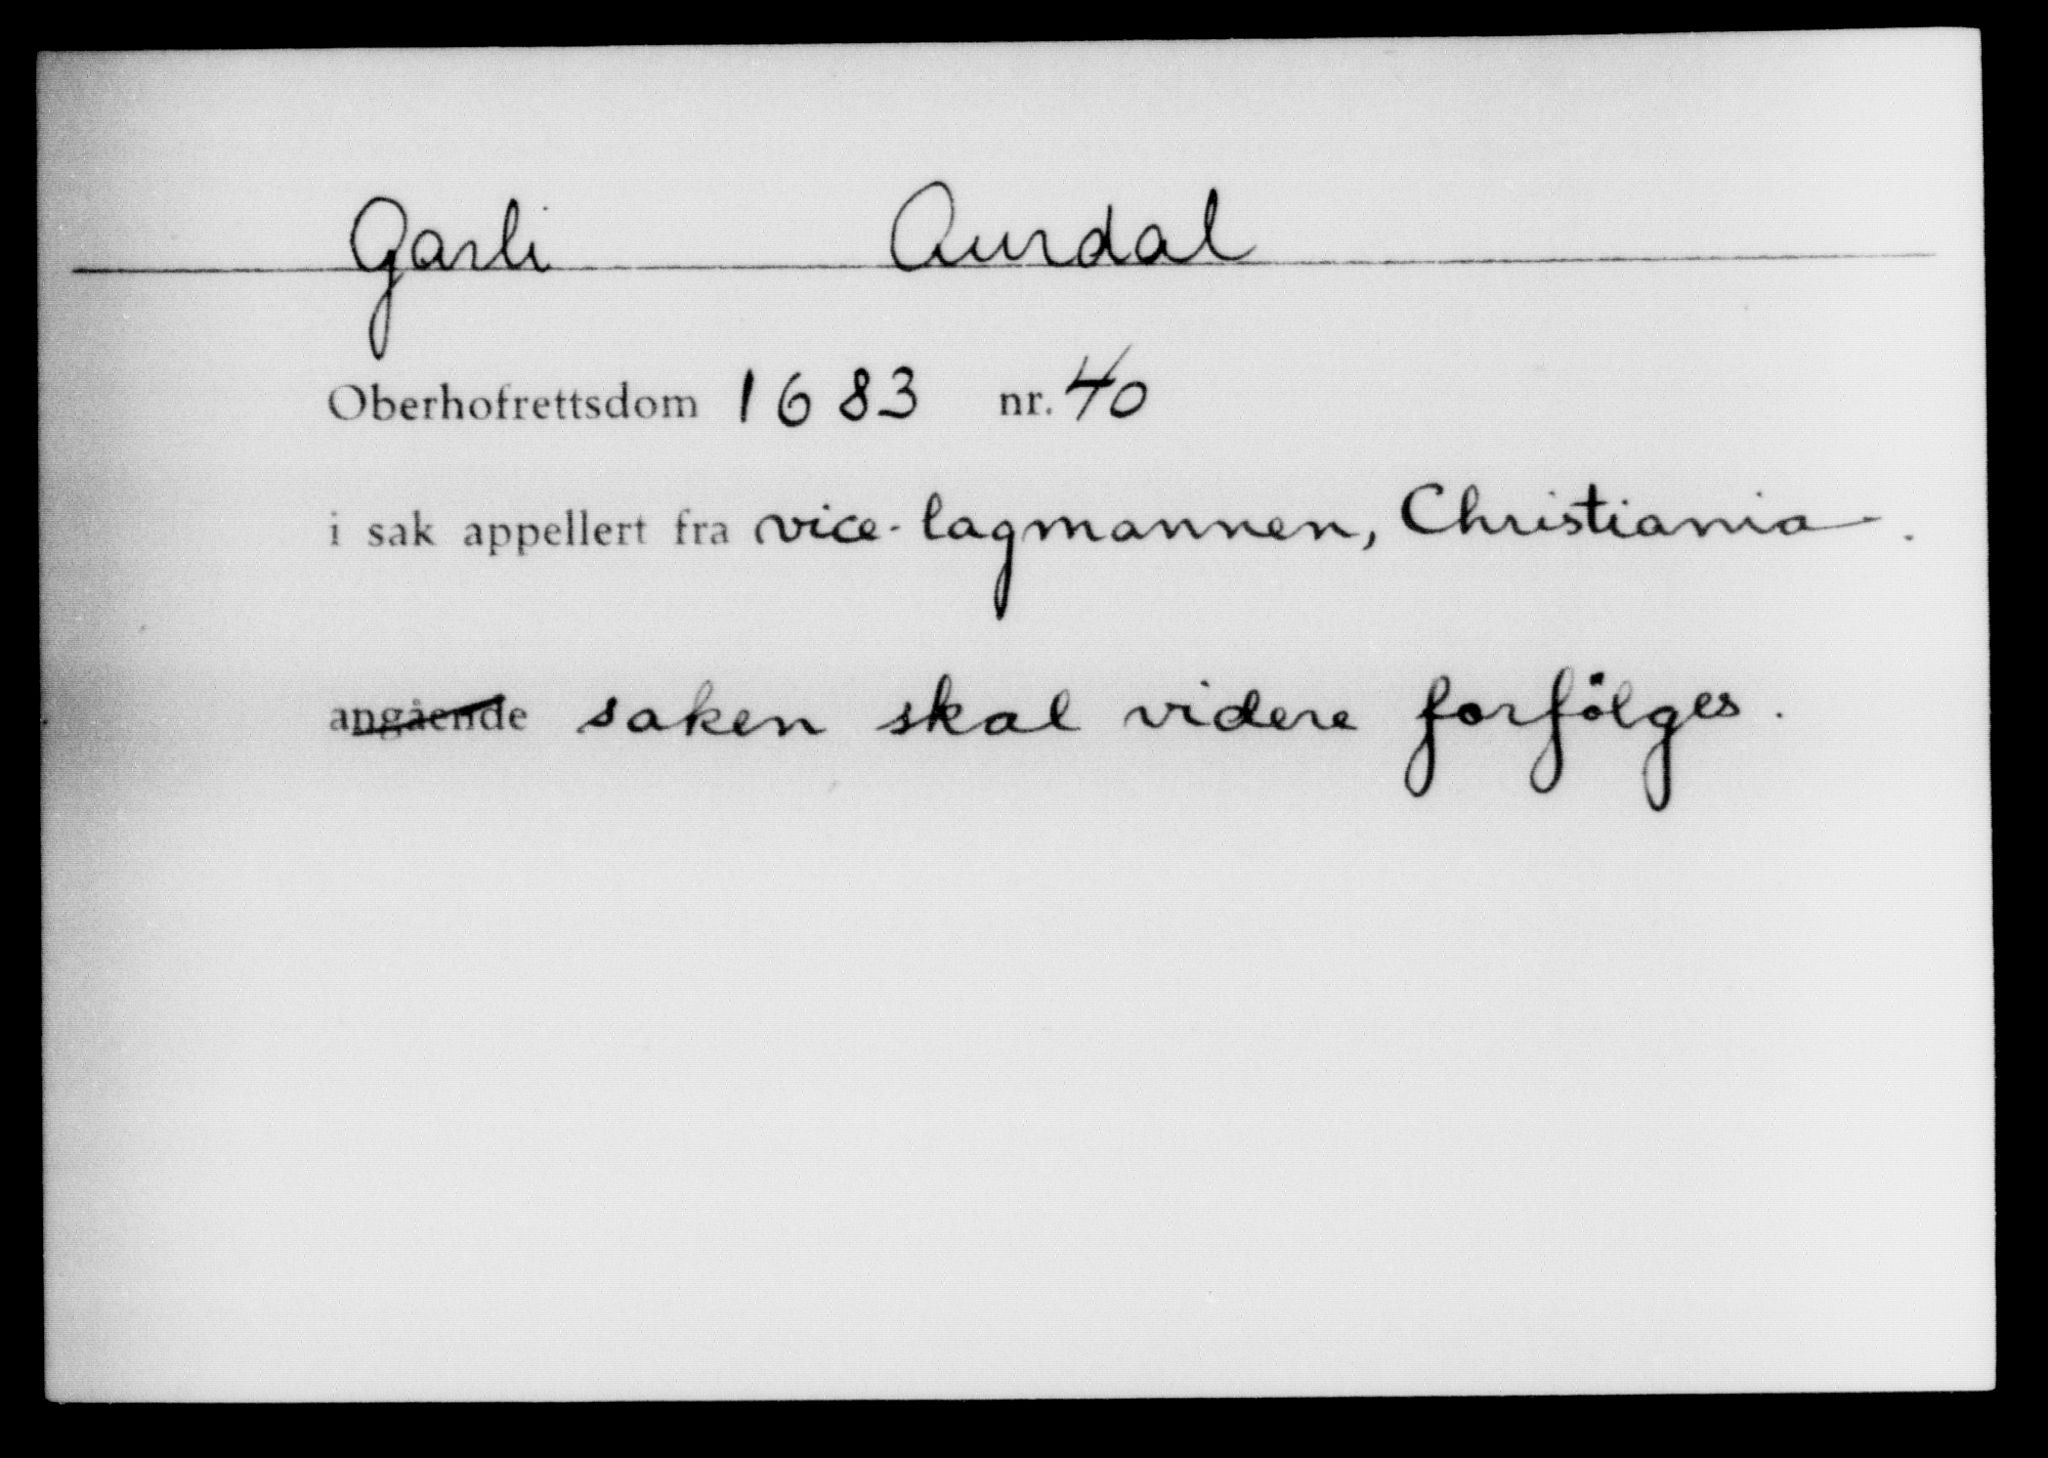 Garli Aurdal
Oberhofrettsdom 1683 nr. 40
i sak appellert fra vice-lagmannen, Christiania.
angående saken skal videre forfölges.